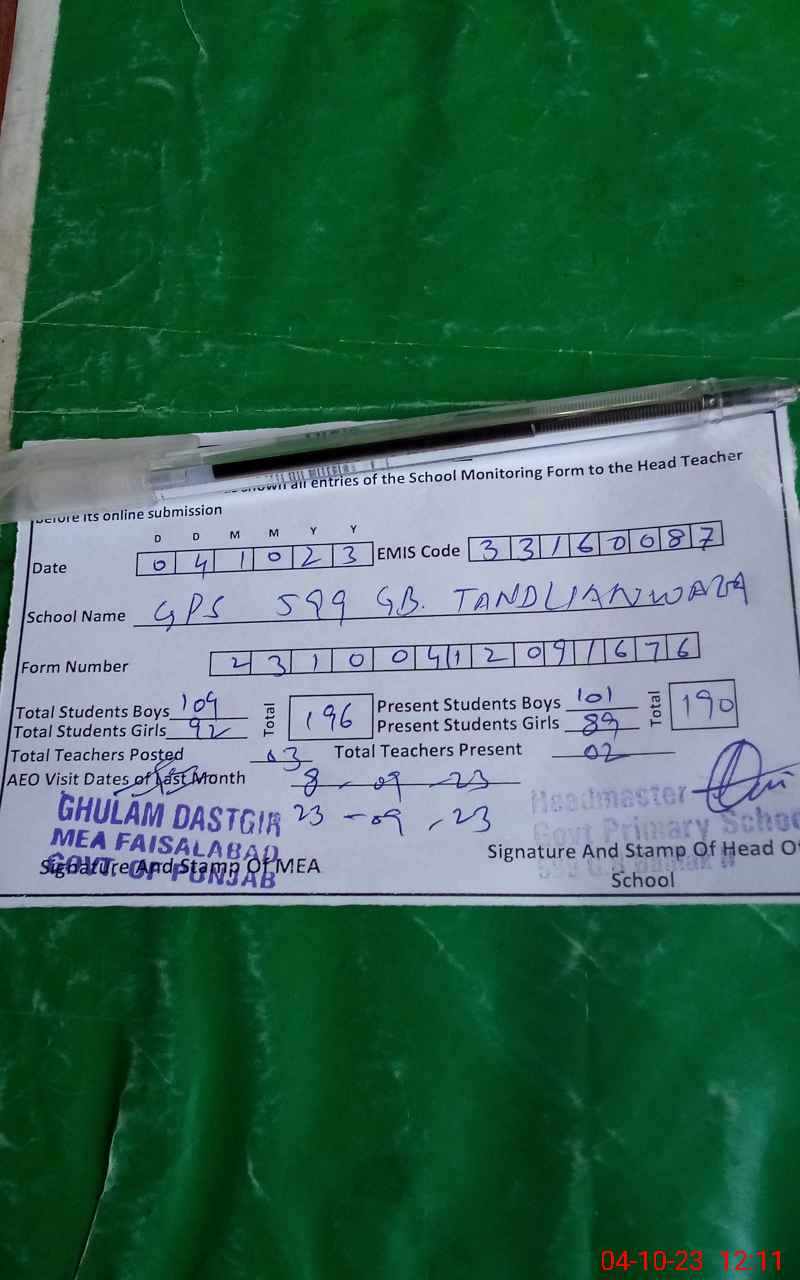 shown all entries of the School Monitoring Form to the Head Teacher
before its online submission
D D M M Y Y
Date 0 4 1 0 2 3 EMIS Code 3 3 1 6 0 0 8 7
School Name GPS 599 GB. TANDLIANWALA
Form Number 2 3 1 0 0 4 1 2 0 9 1 6 7 6
Total Students Boys 104 Total 196 Present Students Boys 101 Total 190
Total Students Girls 92 Present Students Girls 89
Total Teachers Posted 03 Total Teachers Present 02
AEO Visit Dates of Last Month 8-09-23
23-09-23
GHULAM DASTGIR
MEA FAISALABAD
GOVT. OF PUNJAB
Signature And Stamp Of MEA
Headmaster
Govt Primary School
Signature And Stamp Of Head Of
School
04-10-23 12:11